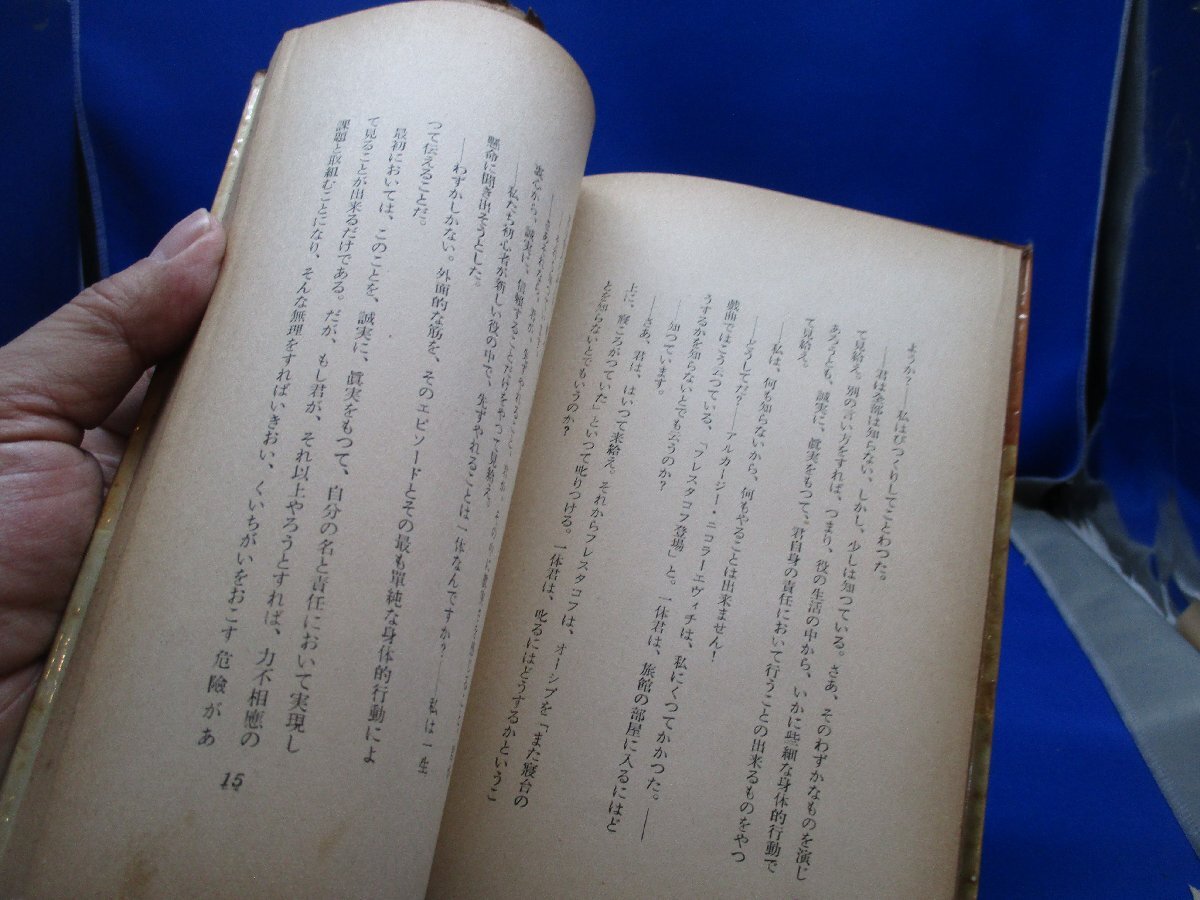 ようか？――私はびつくりしてことわつた。
――君は全部は知らない、しかし、少しは知つている。さあ、そのわずかなものを演じ
て見給え。別の言い方をすれば、つまり、役の生活の中から、いかに些細な身体的行動で
あろうとも、誠実に、眞実をもつて、君自身の責任において行うことの出来るものをやつ
て見給え。
――私は、何も知らないから、何もやることは出来ません！
――どうしてだ？――アルカージー・ニコラーエヴィチは、私にくつてかかつた。――
戯曲ではこう云つている、「フレスタコフ登場」と。一体君は、旅館の部屋に入るにはど
うするかを知らないとでも云うのか？
――知つています。
――さあ、君は、はいつて来給え。それからフレスタコフは、オーシプを「また寝台の
上に、寝ころがつていた」といつて叱りつける。一体君は、叱るにはどうするかというこ
とを知らないとでもいうのか？
衷心から、誠実に、信頼することだけをやつて見給え。
――私たち初心者が新しい役の中で、先ずやれることは一体なんですか？――私は一生
懸命に聞き出そうとした。
――わずかしかない。外面的な筋を、そのエピソードとその最も單純な身体的行動によ
つて伝えることだ。
最初においては、このことを、誠実に、眞実をもつて、自分の名と責任において実現し
て見ることが出来るだけである。だが、もし君が、それ以上やろうとすれば、力不相應の
課題と取組むことになり、そんな無理をすればいきおい、くいちがいをおこす危険があ
15